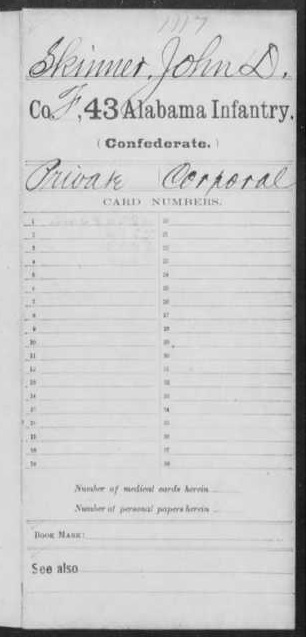 1117
Skinner, John D.
Co. F, 43 Alabama Infantry.
(Confederate.)
Private | Corporal
CARD NUMBERS.
1 20
2 21
3 22
4 23
5 24
6 25
7 26
8 27
9 28
10 29
11 30
12 31
13 32
14 33
15 34
16 35
17 36
18 37
19 38
Number of medical cards herein
Number of personal papers herein
BOOK MARK:
See also